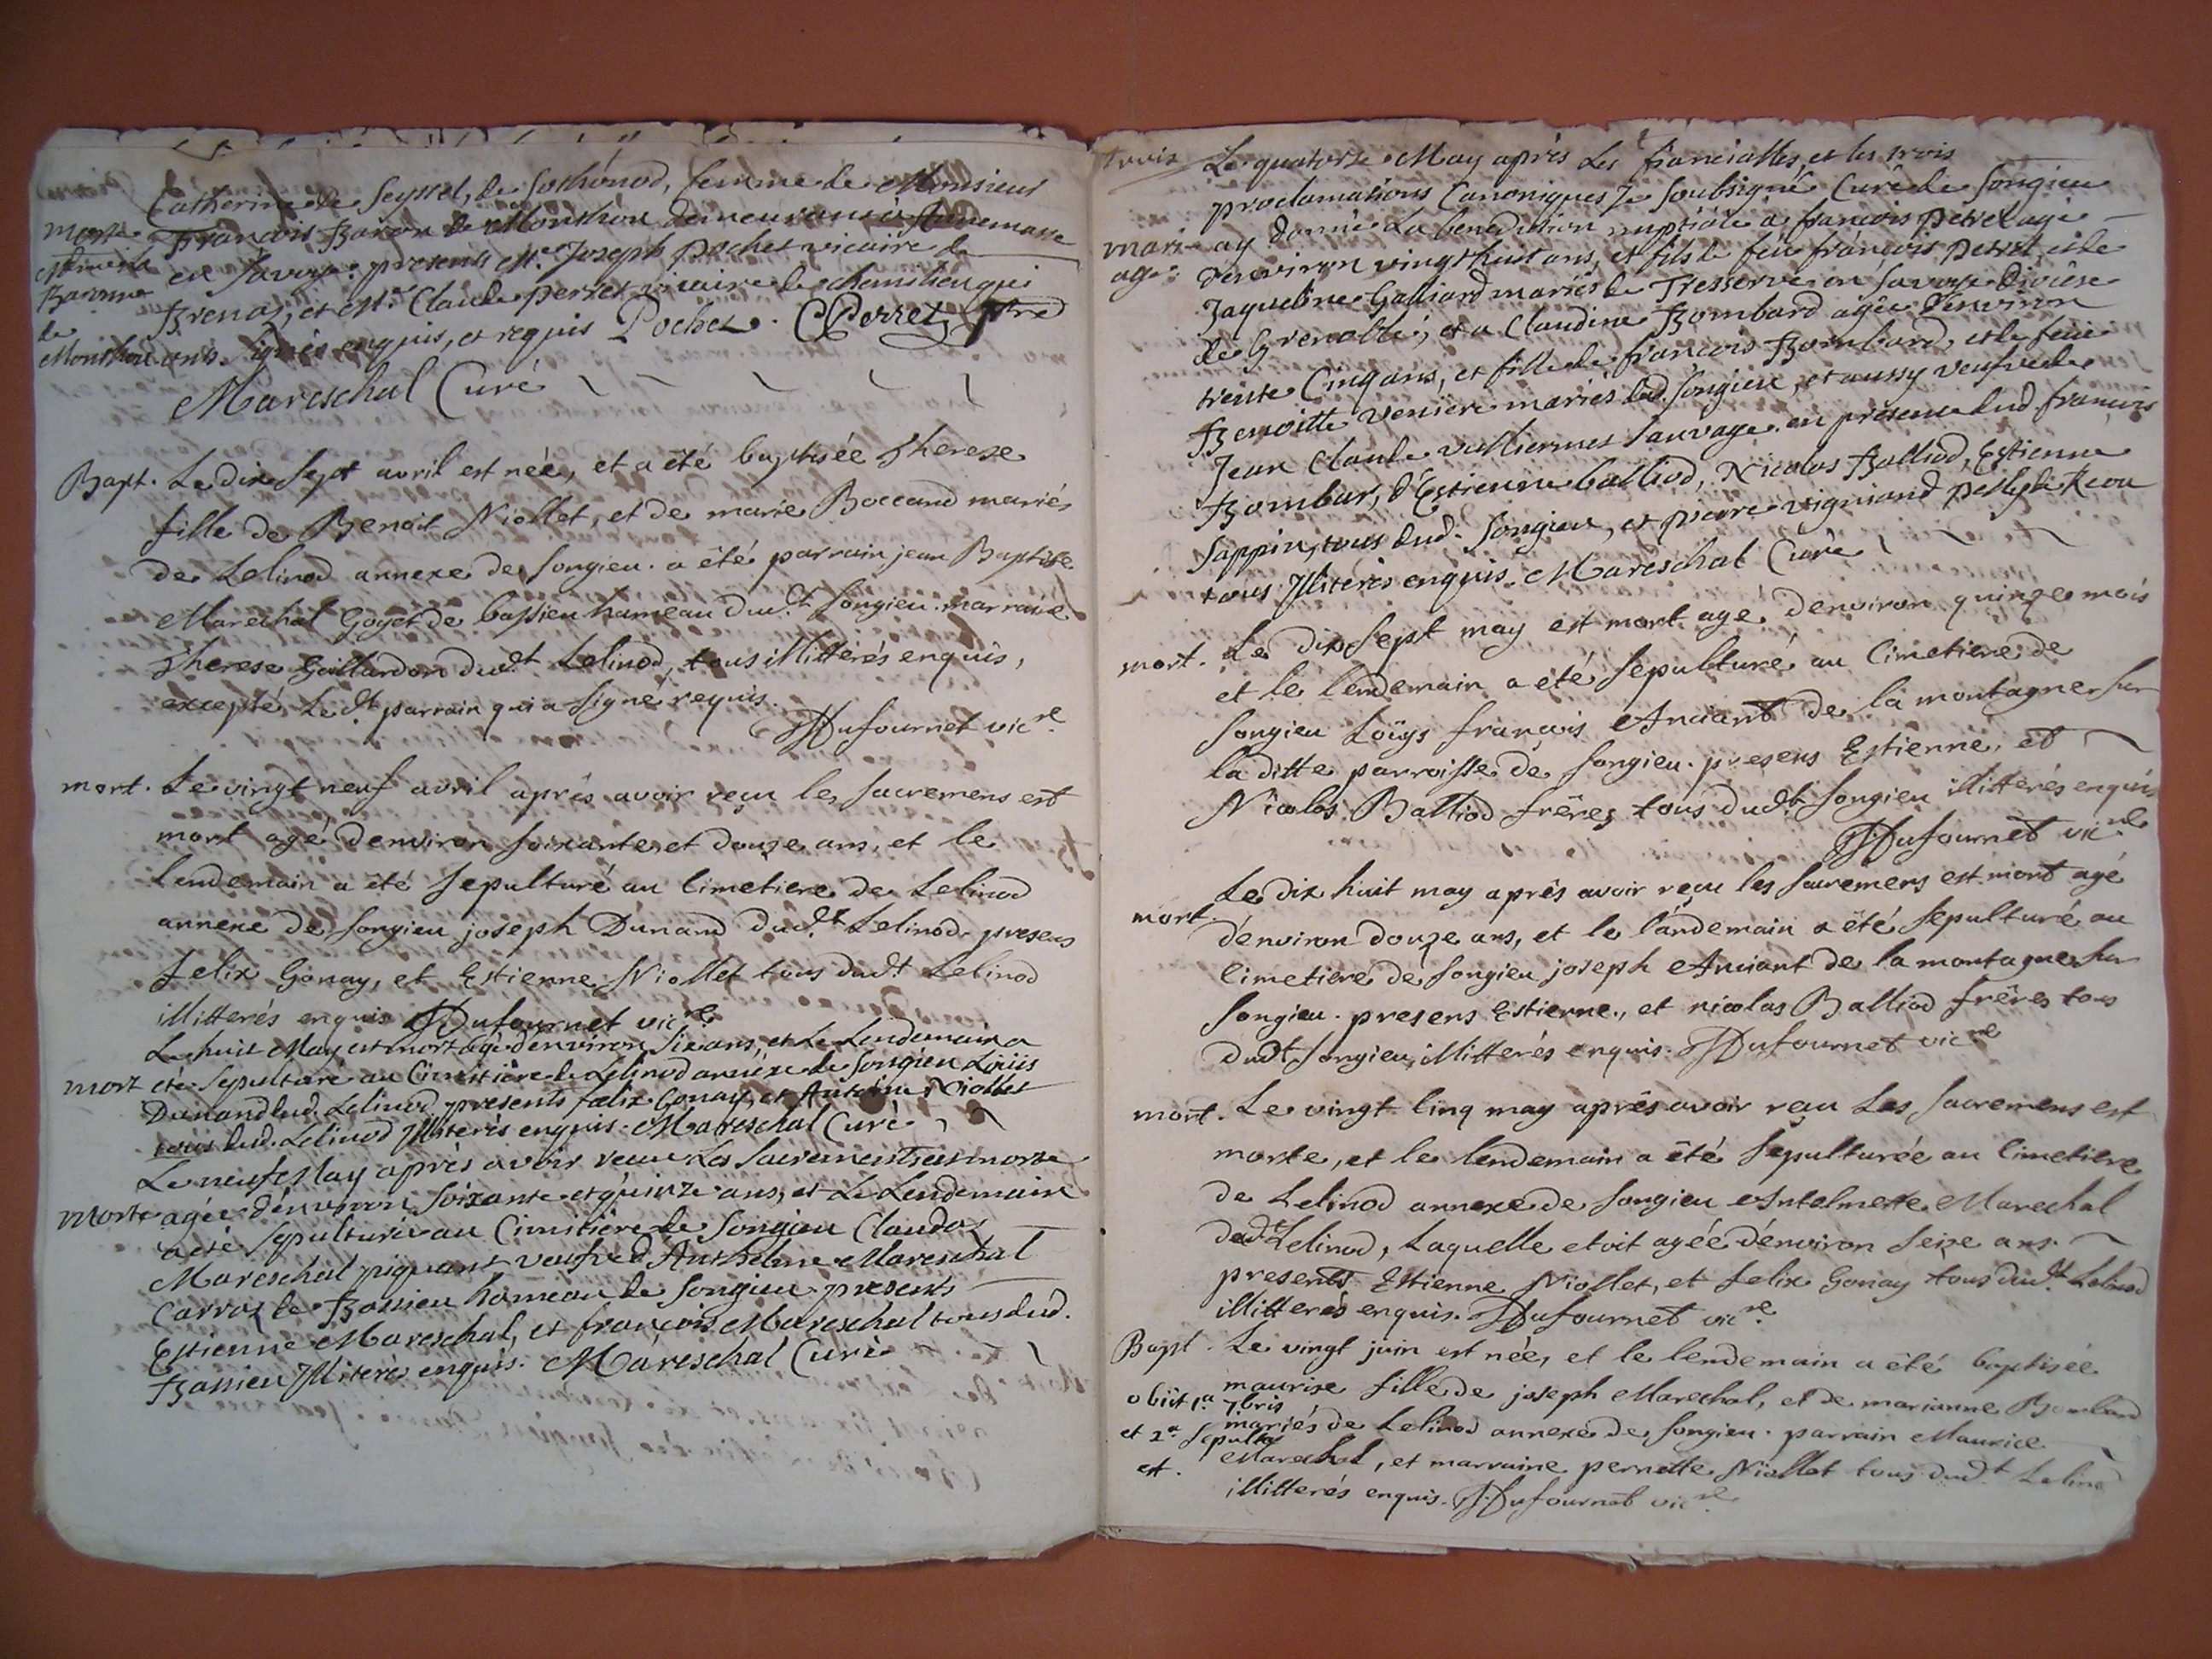 Catherine de Seyssel, de Sothonod, femme de Monsieur
morte François Baron de Monthou demeurans à
en Savoye: presents Mr. Joseph Pochet vicaire de
Baronne Brenaz, et Mr. Claude perret vicaire de chemilieu qui
de
Monthou ont signés enquis, et requis Pochet. CPerret ptre
Mareschal Curé
Bapt. Le dix sept avril est née, et a été baptisée Therese
fille de Benoit Niollet, et de marie Boccand mariés
de Lelinod annexe de songieu. a été parrain jean Baptiste
Marechal Goyet de bassieu hameau dud.t songieu. marraine
Therese Gaillardon dud.t Lelinod, tous illitterés enquis,
excepté Led.t parrain qui a signé requis.
Dufournet vic.re
mort. Le vingt neuf avril après avoir reçu les sacremens est
mort agé denviron soixante et douze ans, et le
lendemain a été sepulturé au cimetiere de Lelinod
annexe de songieu joseph Dunand dud.t Lelinod. presens
felix Gonay, et Estienne Niollet tous dud.t Lelinod
illitterés enquis Dufournet vic.re
Le huit May est mort agé d'environ six ans, et Le Lendemain a
mort eté sepulturé au Cimitière de Lelinod annéxe de Songieu Loüis
Dunand dud. Lelinod presents felix Gonay, et Antoine Niollet
tous dud. Lelinod Illiterés enquis. Mareschal Curé
Le neuf May après avoir receu Les Sacrements est morte
morte agée d'environ soixante et quinze ans, et Le Lendemain
a eté sepulturée au Cimitière de Songieu Clauda
Mareschal piquant veufve d'Anthelme Mareschal
Carroz de Bassieu hameau de Songieu presents
Estienne Mareschal, et françois Mareschal tous dud.
Bassieu Illiterés enquis. Mareschal Curé
trois Le quatorze May après Les fiancialles, et les trois
proclamations Canoniques Je Soubsigné Curé de Songieu
mari- ay donné La benediction nuptiale à françois petrel agé
age: d'environ vingt huit ans, et fils de feu françois petrel, et de
Jaqueline Galliard mariés de Tresserve en Savoye Diocèse
de Grenoble; et a Claudine Bombard agée d'environ
trente Cinq ans, et fille de françois Bombard, et de feüe
Benoitte veniere mariés dud. Songieu, et aussy veufve de
Jean Claude valliermet sauvage. en présence dud. françois
Bombar, d'Estienne Balliod, Nicolas Balliod, Estienne
Sappin, tous dud. Songieu, et pierre vigniand
tous Illiterés enquis. Mareschal Curé
mort. Le dix sept may est mort agé denviron quinze mois
et le lendemain a été sepulturé au cimetiere de
songieu Loüys françois Anciant de la montagne sur
la ditte parroisse de songieu. presens Estienne, et
Nicolas Balliod frères tous dud.t songieu illitterés enquis
Dufournet vic.re
Le dix huit may après avoir reçu les sacremens est mort agé
mort. d'environ douze ans, et le landemain a été sepulturé au
cimetiere de songieu joseph Anciant de la montagne sur
songieu. presens Estienne, et nicolas Balliod frères tous
dud.t songieu, illitterés enquis. Dufournet vic.re
mort. Le vingt cinq may après avoir reçu Les sacremens est
morte, et le lendemain a été sepulturée au cimetiere
de Lelinod annexe de songieu Antelmette Marechal
dud.t Lelinod, Laquelle etoit agée d'environ seize ans.
presents Estienne Niollet, et felix Gonay tous dud.t Lelinod
illitterés enquis. Dufournet vic.re
Bapt. Le vingt juin est née, et le lendemain a été baptisée
maurise fille de joseph Marechal, et de marianne Bombard
obiit 1.a 7bris
mariés de Lelinod annexe de songieu. parrain Maurice
et 2.a sepulta
Marechal, et marraine pernette Niollet tous dud.t Lelinod
est.
illitterés enquis. Dufournet vic.re